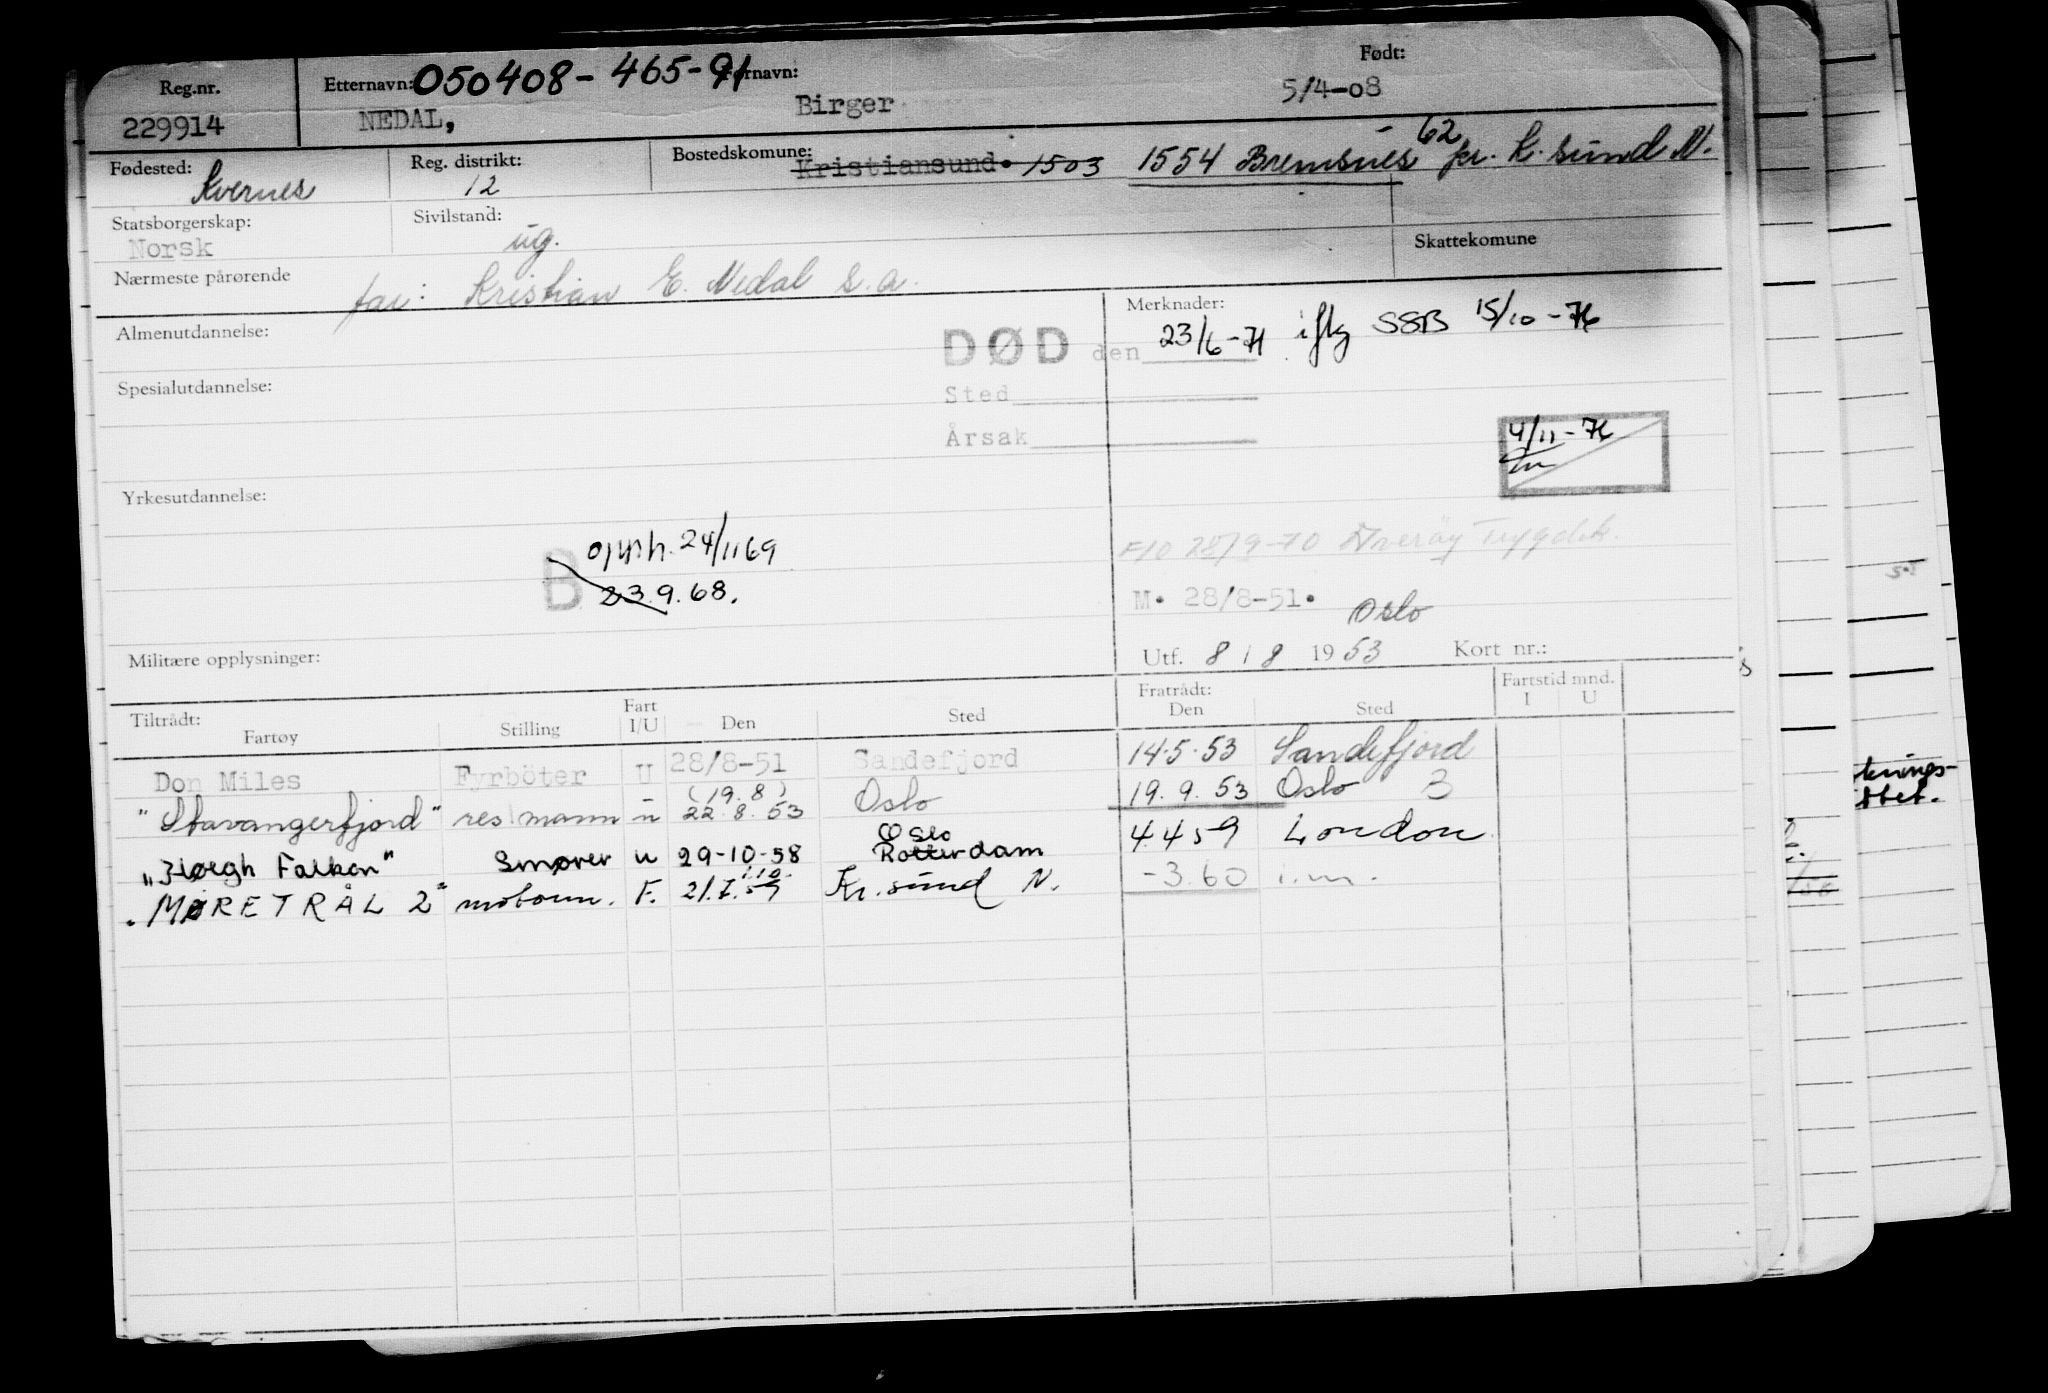 Reg.nr. Etternavn: 050408-465-91 Fornavn: Født:
229914 NEDAL, Birger 5/4-08
Fødested: Kvernes Reg. distrikt: 12 Bostedskomune: Kristiansund. 1503 1554 Bremsnes 62 pr. K. sund N.
Statsborgerskap: Norsk Sivilstand: ug. Skattekomune
Nærmeste pårørende far: Kristian E. Nedal s.a.
Almenutdannelse: Merknader:
DØD den 23/6-71 iflg SSB 15/10-76
Spesialutdannelse: Sted
Årsak 4/11-76
Yrkesutdannelse:
B opph. 24/11 69
23.9.68.
F10 28/9-70 Averøy Trygdek.
M. 28/8-51. Oslo
Militære opplysninger: Utf. 8/8 1953 Kort nr.:
Tiltrådt: Fratrådt: Fartstid mnd.
Fartøy Stilling Fart I/U Den Sted Den Sted I U
Don Miles Fyrböter U 28/8-51 Sandefjord 14.5.53 Sandefjord
"Stavangerfjord" res mann u (19.8) 22.8.53 Oslo 19.9.53 Oslo 3
"Høegh Falkon" Smører u 29-10-58 Oslo Rotterdam 4.4 59 London
"MØRETRÅL 2" motorm. F. 21.7.59 1.10. Kr. sund N. -3.60 i.m.